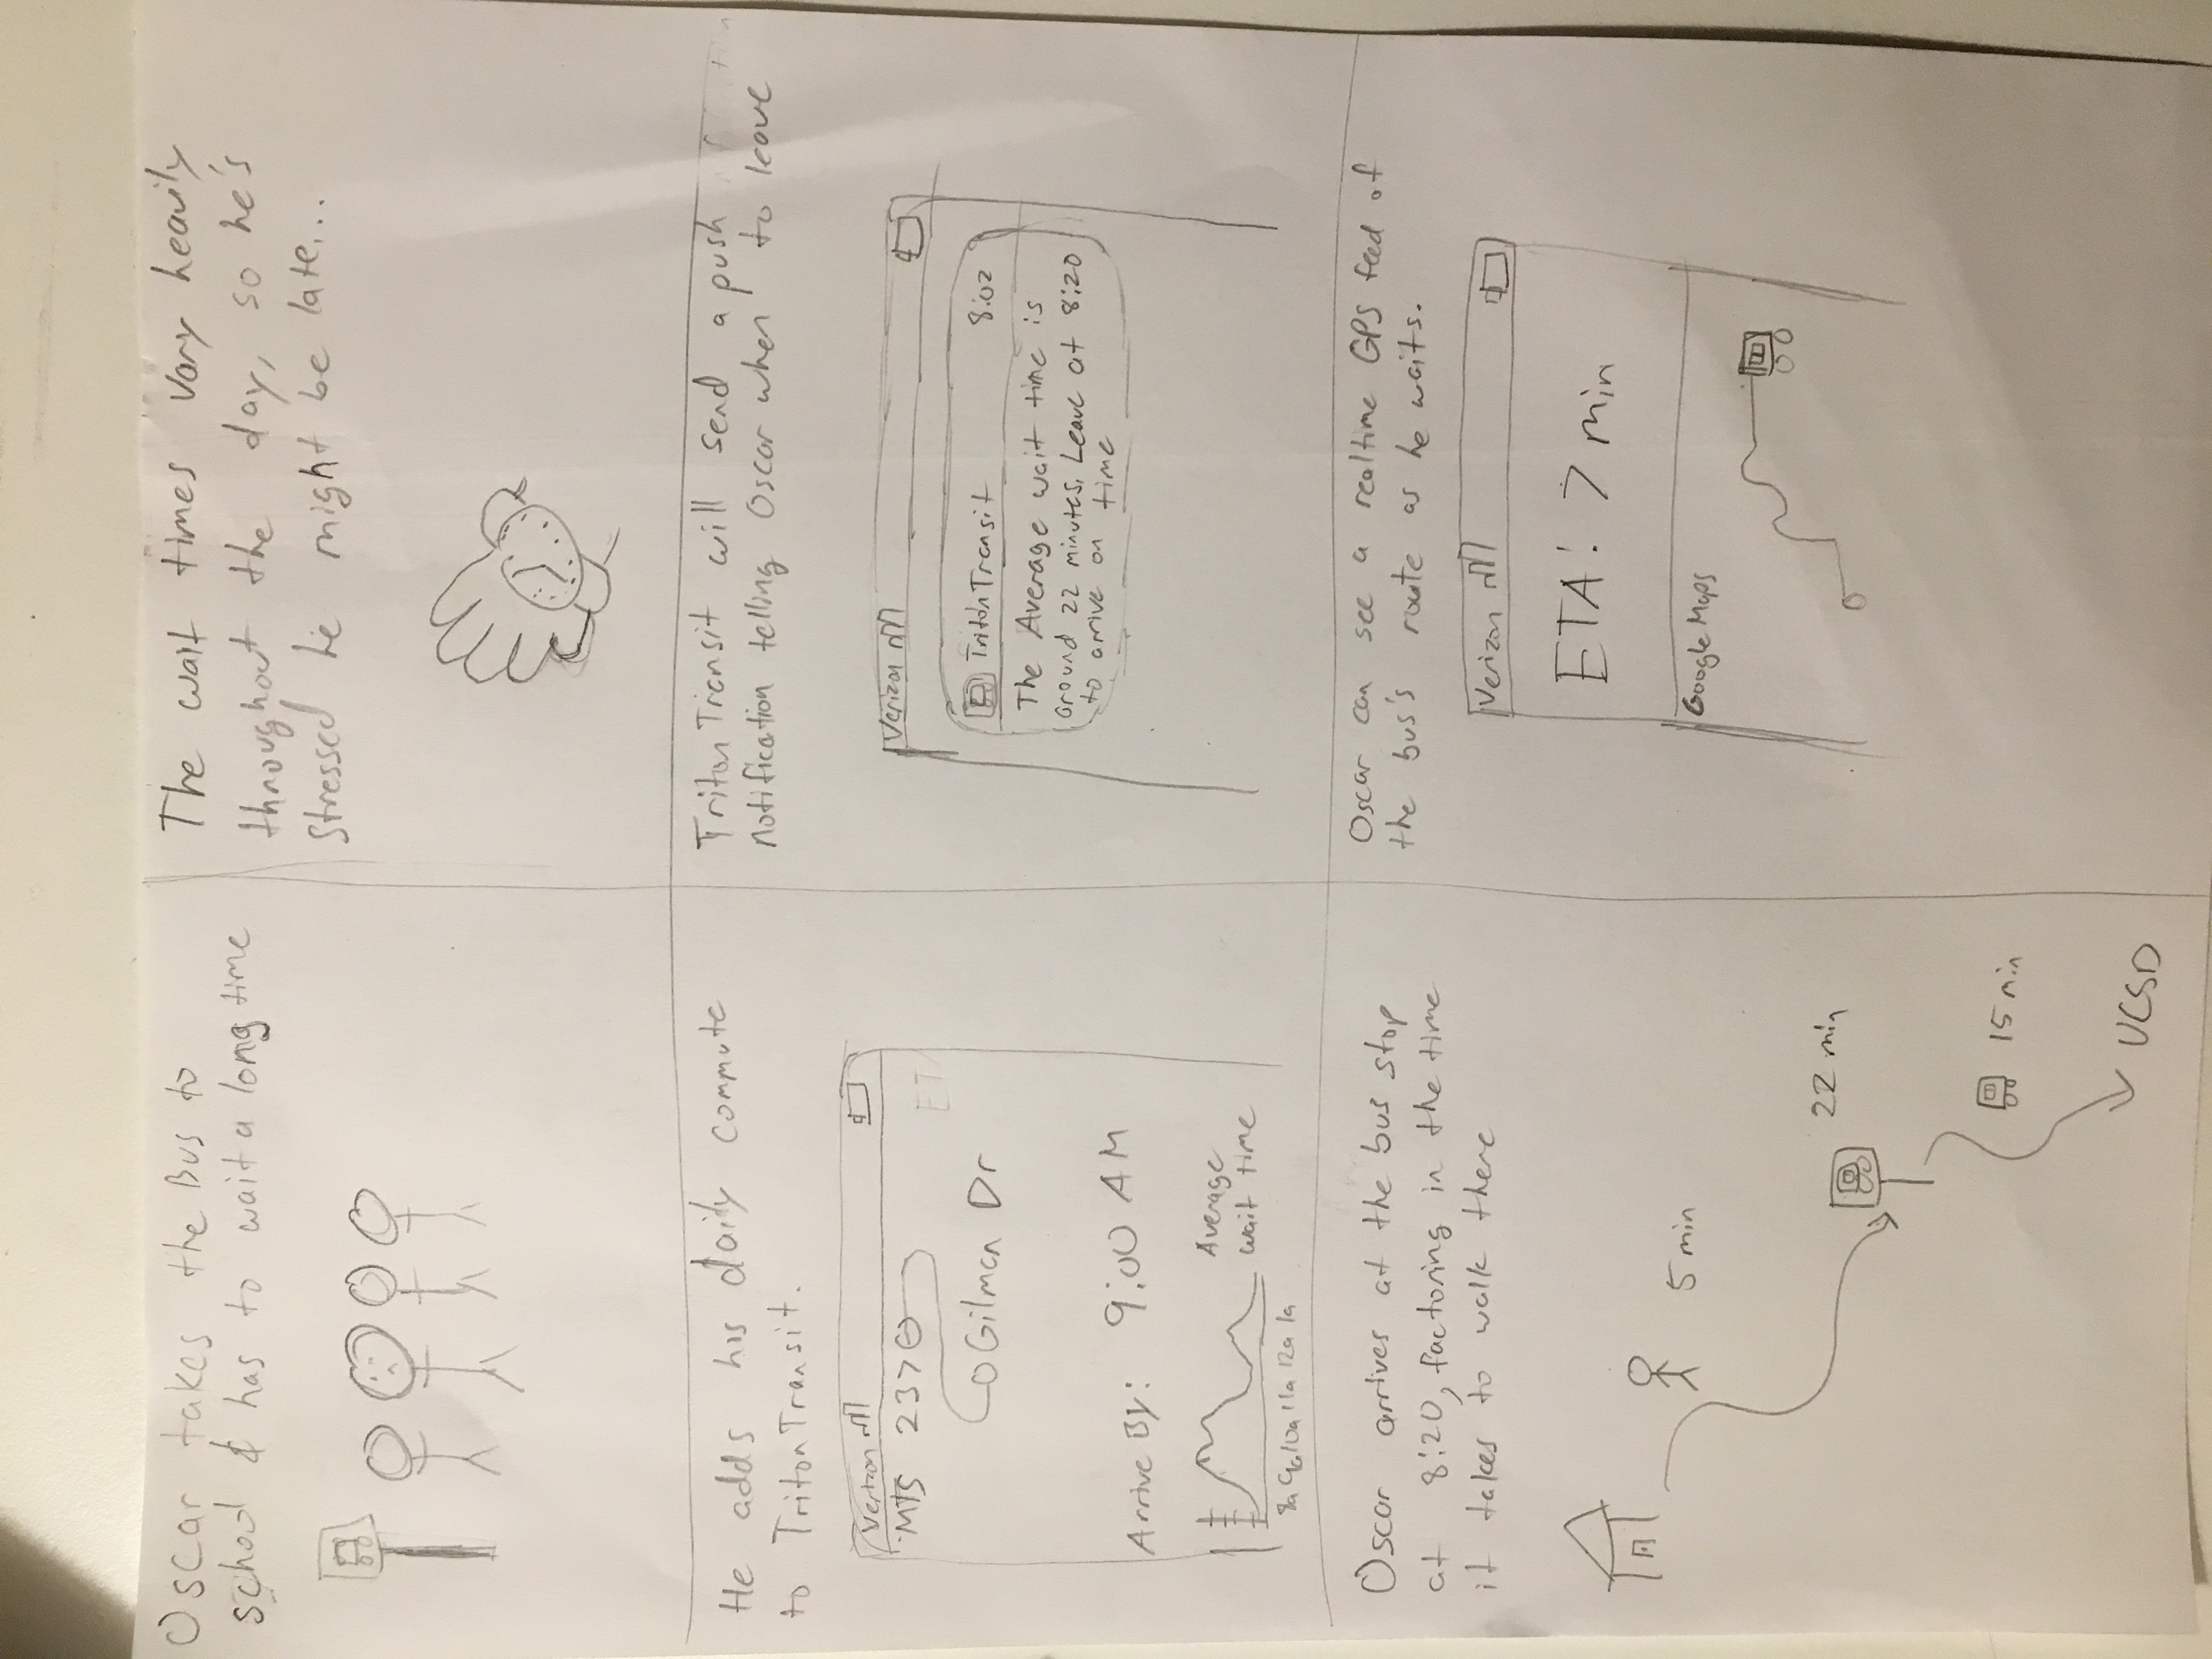 Oscar takes the Bus to
school & has to wait a long time
The wait times vary heavily
throughout the day, so he's
stressed he might be late...
He adds his daily commute
to TritonTransit.
Verizon
MTS 237
Gilman Dr
ET
Arrive By: 9:00 AM
Average
wait time
8a 9a 10a 11a 12a 1a
TritonTransit will send a push
notification telling Oscar when to leave
Verizon
TritonTransit 8:02
The Average wait time is
around 22 minutes. Leave at 8:20
to arrive on time
Oscar arrives at the bus stop
at 8:20, factoring in the time
it takes to walk there
5 min
22 min
15 min
UCSD
Oscar can see a realtime GPS feed of
the bus's route as he waits.
Verizon
ETA: 7 min
Google Maps